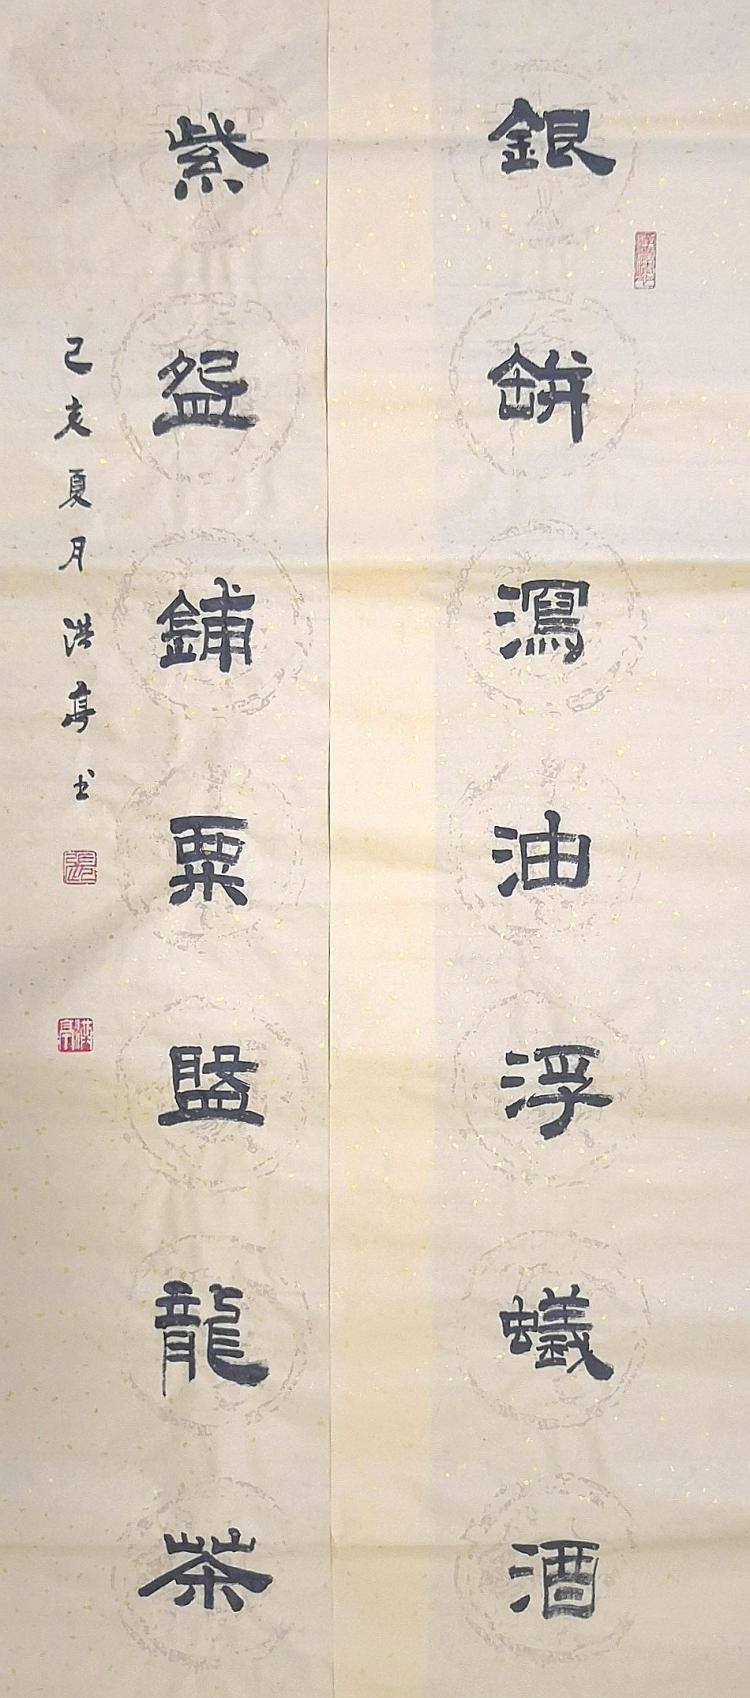 銀缾瀉油浮蟻酒
紫盌鋪粟盤龍茶
己亥夏月浩亭书